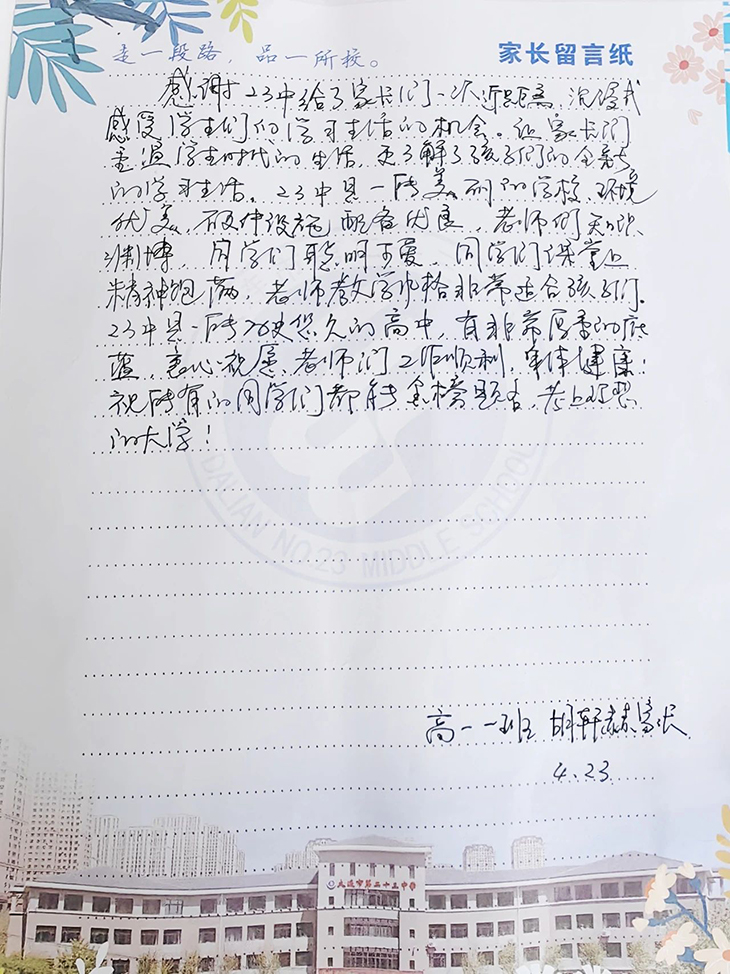 走一段路，品一所校。
家长留言纸
感谢23中给了家长们一次近距离，沉浸式
感受学生们的学习生活的机会。让家长们
重温学生时代的生活，更了解了孩子们的全新
的学习生活。23中是一所美丽的学校，环境
优美，硬件设施配备优良，老师的知识
渊博，同学们聪明可爱，同学们课堂上
精神饱满，老师教学非常适合孩子们。
23中是一所历史悠久的高中，有非常厚重的底
蕴，衷心祝愿老师们工作顺利，身体健康；
祝所有的同学们都能金榜题名，考上理想
的大学！
DALIAN NO.23 MIDDLE SCHOOL
高一一班 胡轩赫家长
4.23
大连市第二十三中学